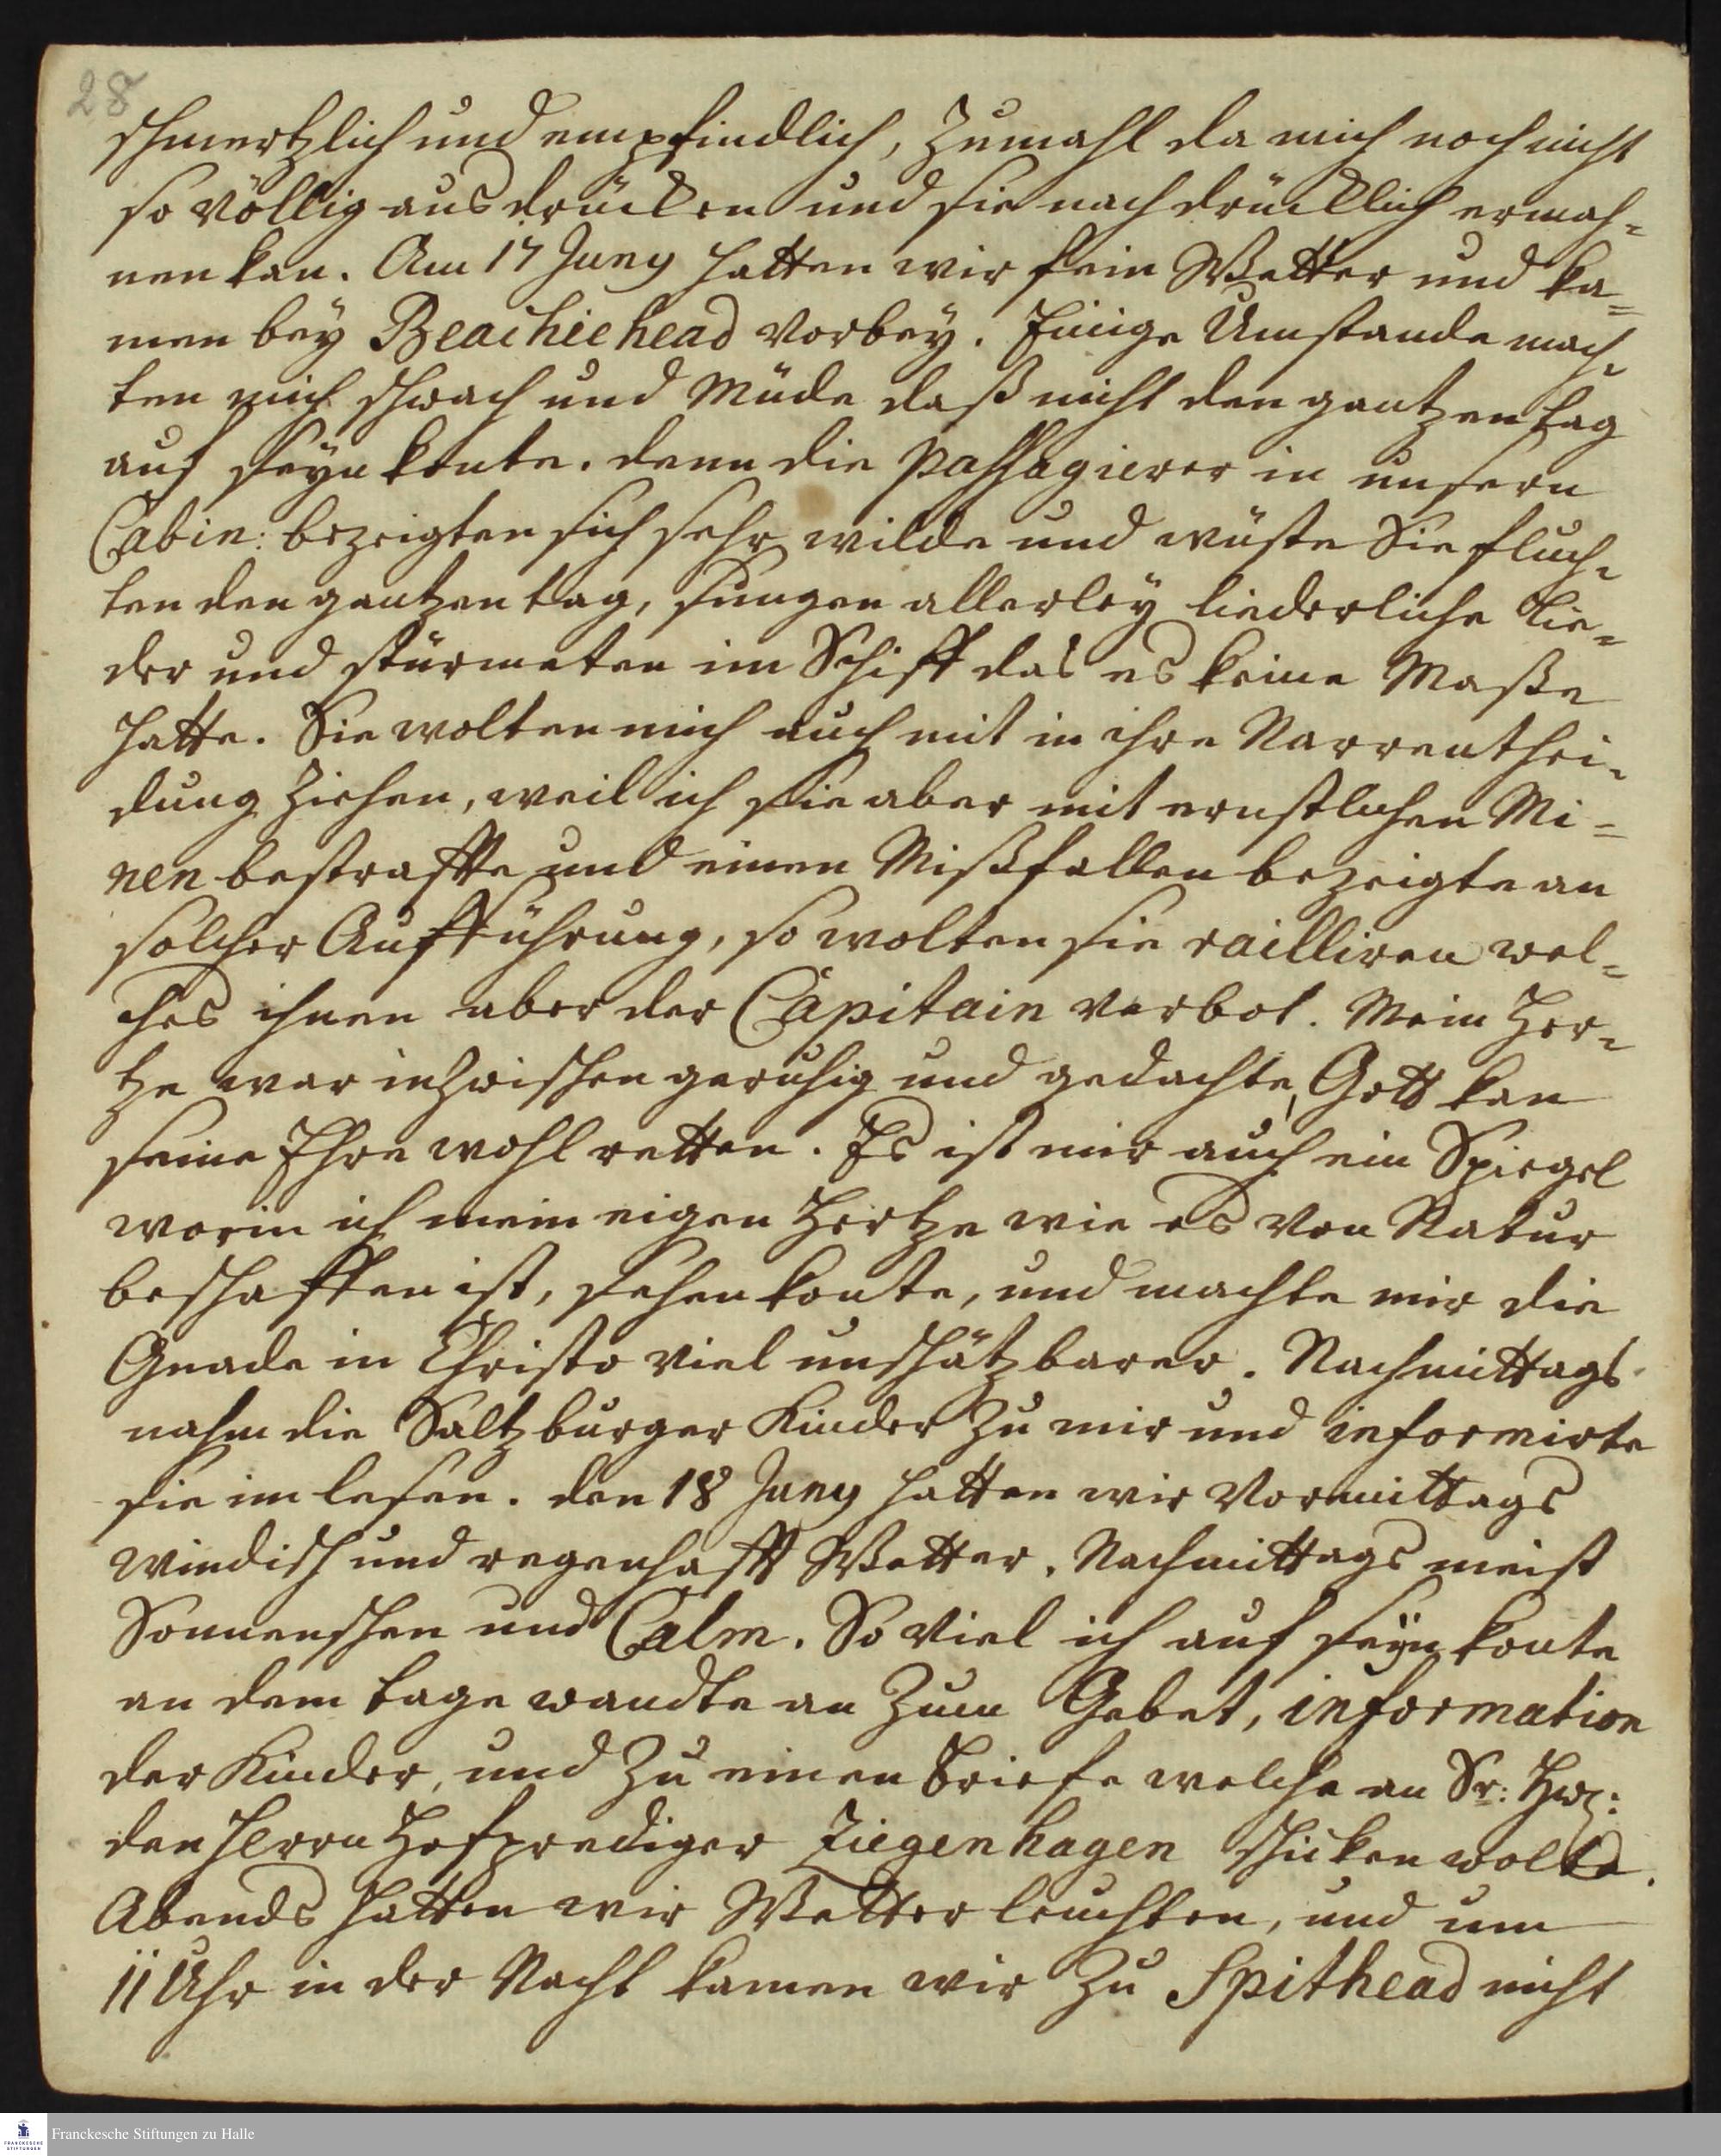 28
schmertzlich und empfindlich, Zumahl da mich noch nicht
so völlig ausdrücken und sie nachdrücklich ermah=
nen kan. Am 17 Juny hatten wir fein Wetter und ka=
men bey Beachiehead vorbey. Einige Umstande mach=
ten mich schwach und Müde daß nicht den gantzen tag
auf seyn konte. denn die passagierer in unsern
Cabin: bezeigten sich sehr wilde und wüste Sie fluch=
ten den gantzen tag, sungen allerley liederliche Lie=
der und stürmeten im Schiff das es keine Maße
hatte. Sie wolten mich auch mit in ihre Narrenthei=
dung Ziehen, weil ich sie aber mit ernstlichen Mi=
nen bestraffte und einen Mißfallen bezeigte an
solcher Aufführung, so wolten sie railliren wel=
ches ihnen aber der Capitain verbot. Mein Her=
tze war inzwischen geruhig und gedachte, Gott kan
seine Ehre wohl retten. Es ist mir auch ein Spiegel
worin ich mein eigen Hertze wie es von Natur
beschaffen ist, sehen konte, und machte mir die
Gnade in Christo viel unschätzbarer. Nachmittags
nahm die Saltzburger Kinder zu mir und informirte
sie im lesen. den 18 Juny hatten wir Vormittags
windisch und regenhafft Wetter. Nachmittags meist
Sonnenschen und Calm. So viel ich auf seyn konte
an dem tage wandte an Zum Gebet, information
der Kinder, und Zu einen Briefe welche an Sr: Hw:
den Herrn Hofprediger Ziegenhagen schicken wolte.
Abends hatten wir Wetter leuchten, und um
11 Uhr in der Nacht kamen wir Zu Spithead nicht
Franckesche Stiftungen zu Halle
FRANCKESCHE
STIFTUNGEN